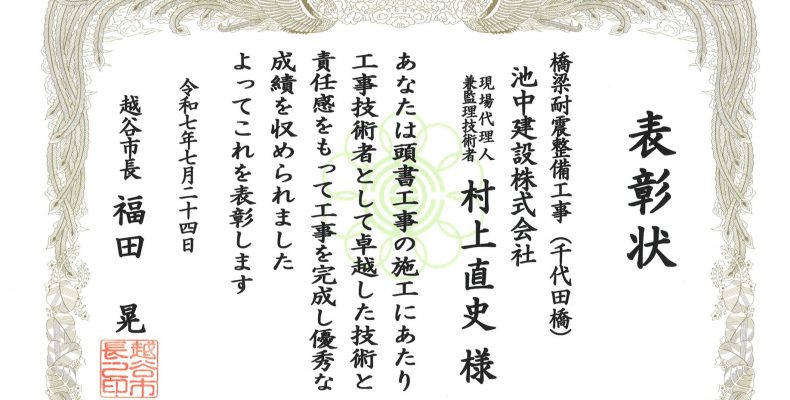 表彰状
橋梁耐震整備工事（千代田橋）
池中建設株式会社
現場代理人
兼監理技術者
村上直史 様
あなたは頭書工事の施工にあたり
工事技術者として卓越した技術と
責任感をもって工事を完成し優秀な
成績を収められました
よってこれを表彰します
令和七年七月二十四日
越谷市長 福田 晃
越谷市
長之印